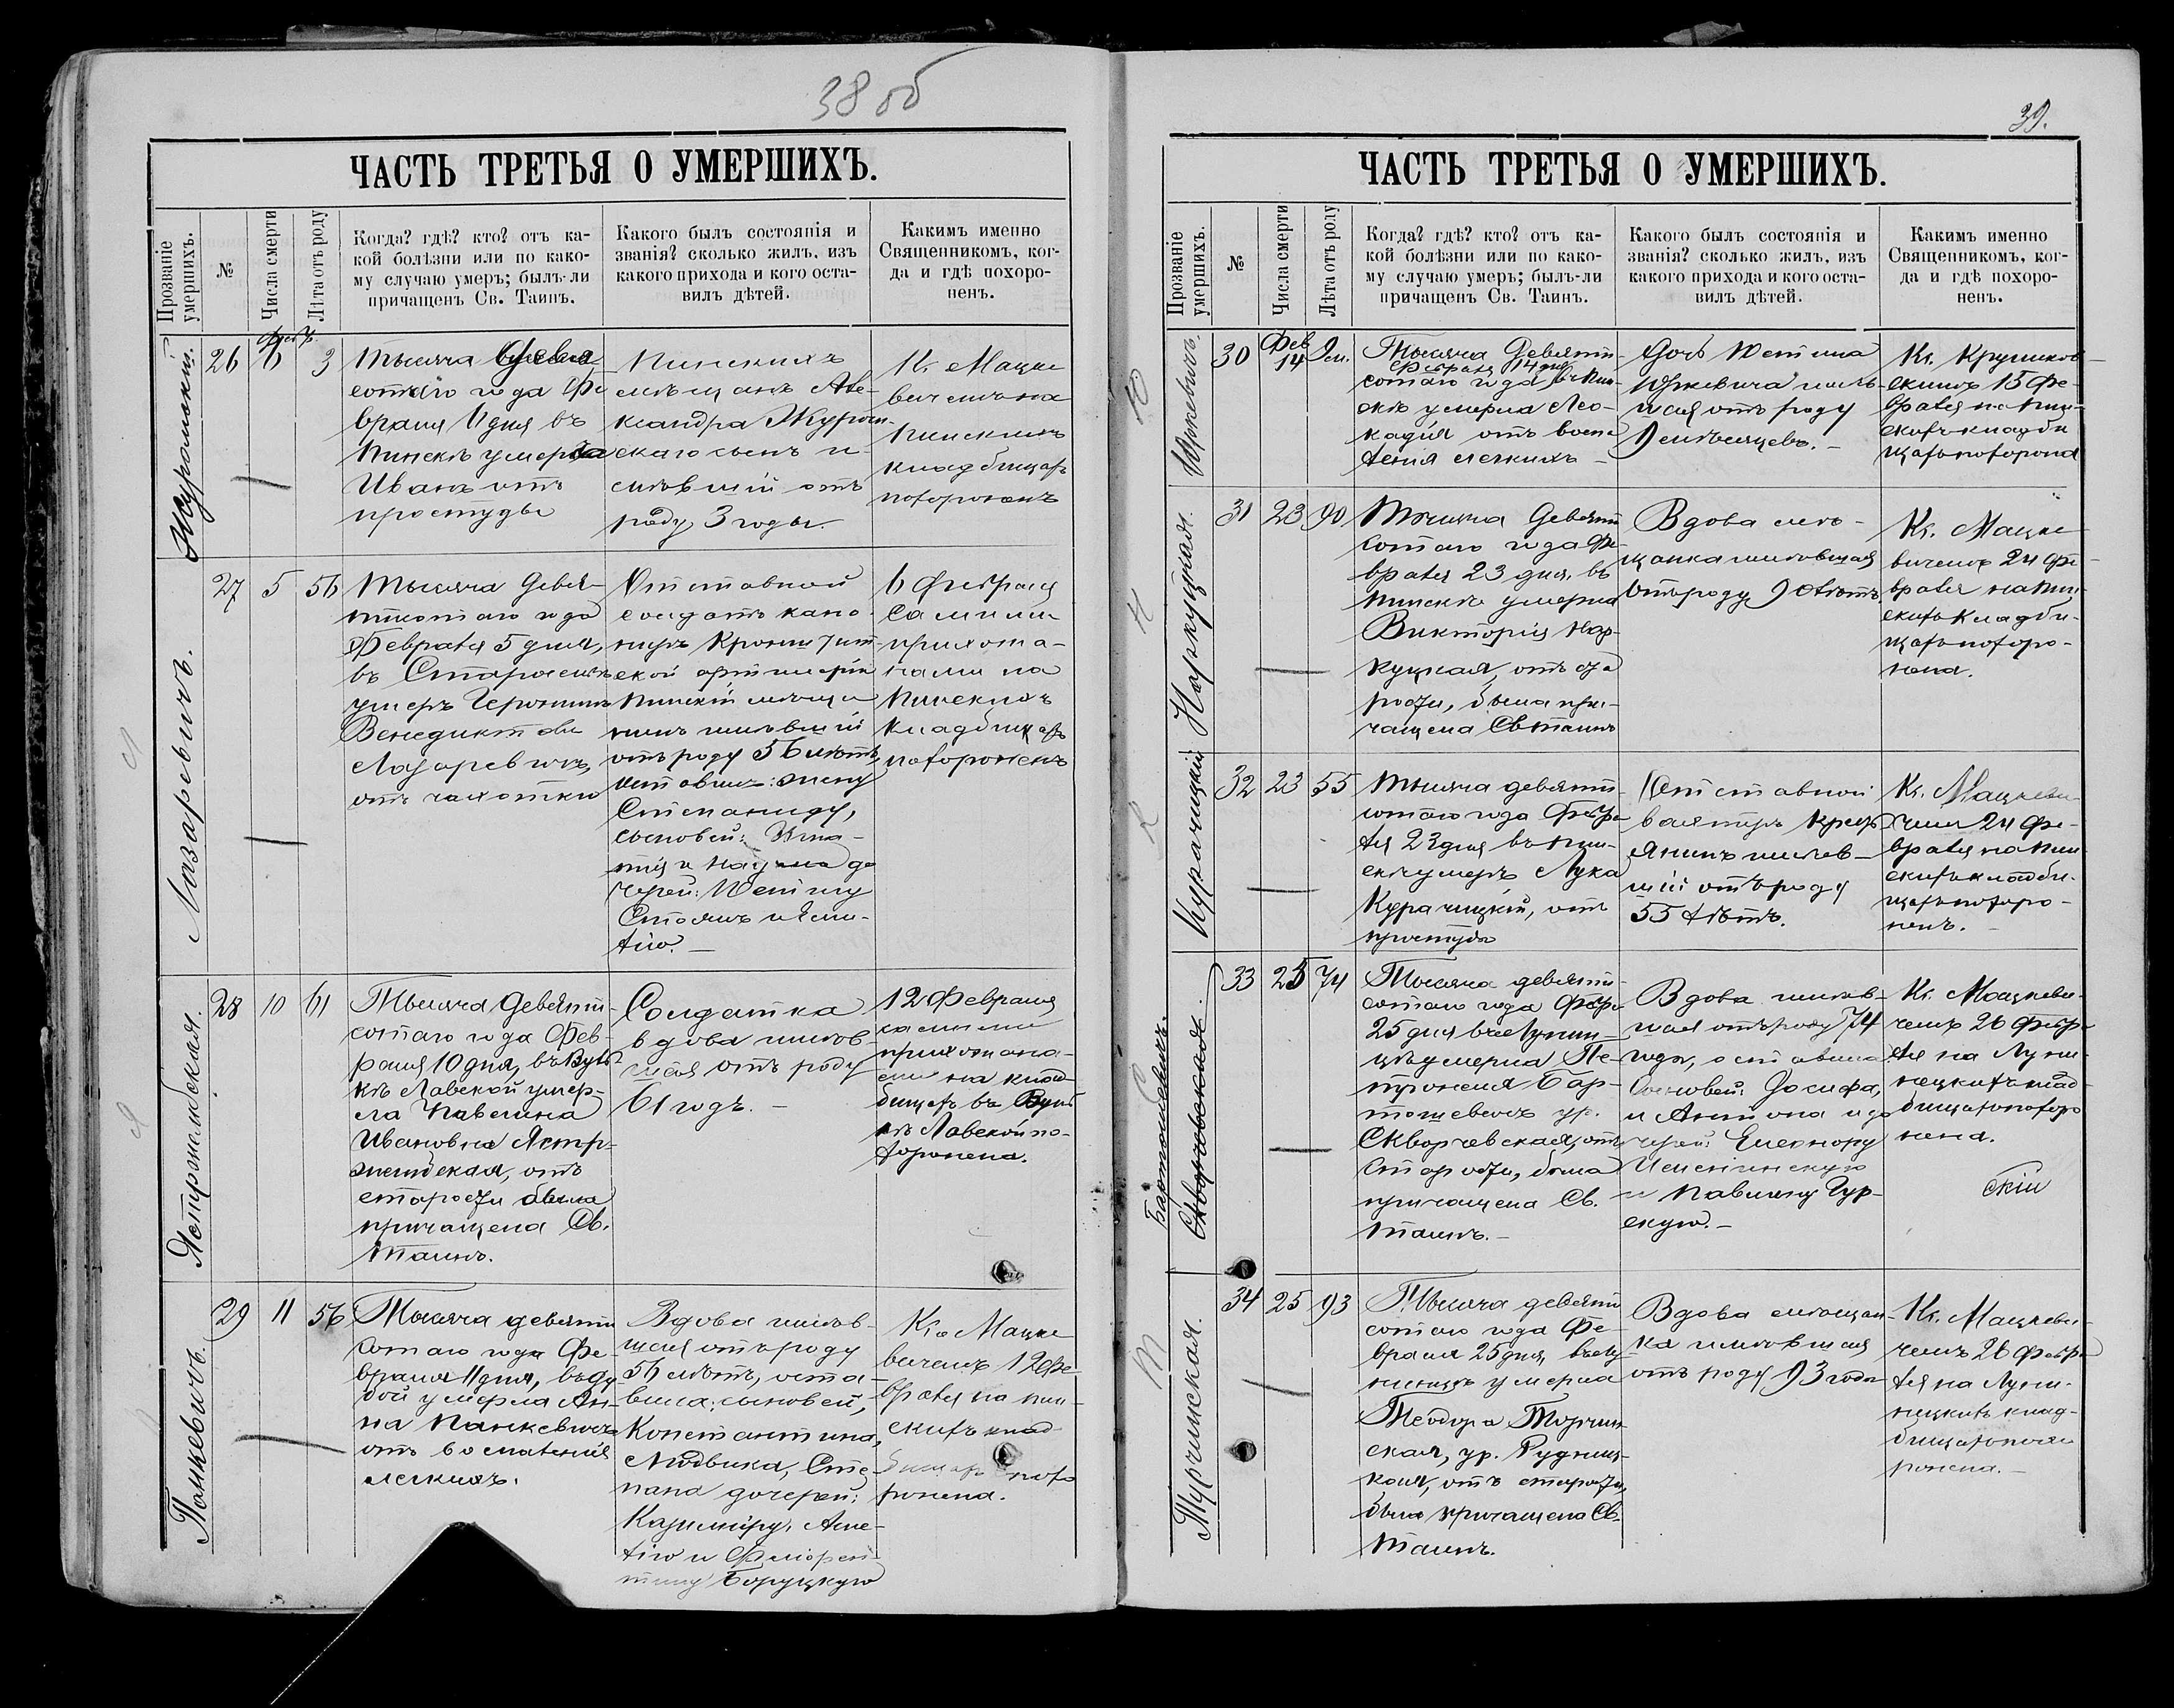 38 об
ЧАСТЬ ТРЕТЬЯ О УМЕРШИХЪ.
Прозваніе умершихъ.
№
Числа смерти
Лѣта отъ роду
Когда? гдѣ? кто? отъ ка-
кой болѣзни или по како-
му случаю умеръ; былъ-ли
причащенъ Св. Таинъ.
Какого былъ состоянія и
званія? сколько жилъ, изъ
какого прихода и кого оста-
вилъ дѣтей.
Каким именно
Священникомъ, ког-
да и гдѣ похоро-
ненъ.
26
3
Тысяча девя
сотаго года Фе
враля дня въ
Пинскѣ умеръ
Иванъ отъ
простуды
Пинскихъ
мѣщанъ Але
ксандра
скаго сынъ и
мѣвшій отъ
роду 3 годы.
Кс. Мацке
вичемъ на
Пинскихъ
кладбищахъ
похороненъ
Лазаревичъ.
27
5
56
Тысяча девя-
тисотаго года
Февраля 5 дня,
въ
умеръ Іеронимъ
Венедиктовъ
Лазаревичъ,
отъ чахотки
Отставной
солдатъ кано-
ниръ Кронштат
ской артилеріи
Пинскій мѣща
нинъ имѣвшій
отъ роду 56 лѣтъ,
оставилъ: жену
Степаниду,
сыновей: Игна-
тія и до
черей: Юстину
и Эми-
лію.—
6 Февраля
самими
прихожа-
нами на
Пинскихъ
кладбищахъ
похороненъ
Ястржембская.
28
10
61
Тысяча девяти-
сотаго года Фев-
раля 10 дня, въ
кѣ Лавской умер-
ла Павелина
Ивановна Ястр-
жембская, отъ
старости была
причащена Св.
Таинъ.
Солдатка
вдова имѣв-
шая отъ роду
61 годъ.—
12 Февраля
самими
прихожана-
ми на клад-
бищахъ въ
кѣ Лавской по-
хоронена.
Панкевичъ.
29
11
56
Тысяча девяти
сотаго года Фе-
враля 11 дня, въ Ду
бой умерла Ан-
на Панкевичъ
отъ воспаленія
легкихъ.
Вдова имѣв-
шая отъ роду
56 лѣтъ, оста-
вила: сыновей,
Константина,
Людвика, Сте
пана дочерей:
Казиміру, Аме-
лію и Флорен-
тину Боруцкую
Кс. Мацке
вичемъ 12 Фе
враля на Пин
скихъ клад-
бищахъ похо
ронена.
39.
ЧАСТЬ ТРЕТЬЯ О УМЕРШИХЪ.
Прозваніе умершихъ.
№
Числа смерти
Лѣта отъ роду
Когда? гдѣ? кто? отъ ка-
кой болѣзни или по како-
му случаю умеръ; былъ-ли
причащенъ Св. Таинъ.
Какого былъ состоянія и
званія? сколько жилъ, изъ
какого прихода и кого оста-
вилъ дѣтей.
Какимъ именно
Священникомъ, ког-
да и гдѣ похоро-
ненъ.
Юркевичъ.
30
Фев
14
9 м.
Тысяча Девяти-
Февраля 14 дня
сотаго года въ Пин-
скѣ умерла Лео-
кадія отъ воспа
ленія легкихъ—
Дочь Юстина
Юркевича имѣв-
шая отъ роду
9 мѣсяцевъ.—
Кс. Круликов-
скимъ 15 Фе-
враля на Пин-
скихъ кладби
щахъ похоронена
31
23
90
Тысяча Девяти
сотаго года Фе-
враля 23 дня, въ
Пинскѣ умерла
Викторія Нар-
куцкая, отъ ста
рости, была при-
чащена Св. таинъ
Вдова мѣ-
щанка имѣвшая
отъ роду 90 лѣтъ.
Кс. Мацке
вичемъ 24 Фе-
враля на Пин
скихъ кладби-
щахъ похоро-
нена.
Курачицкій
32
23
55
Тысяча девяти-
сотаго года Февра
ля 23 дня въ Пин-
скѣ умеръ Лука
Курачицкій, отъ
простуды
Отставной
крес
янинъ имѣв-
шій отъ роду
55 лѣтъ.
Кс. Мацкеви-
чемъ 24 Фе-
враля на Пин
скихъ кладби-
щахъ похоро-
ненъ.
Бартошевичъ.
Скворчевская.
33
25
74
Тысяча девяти-
сотаго года Февр
25 дня въ Лунин-
цѣ умерла Пе-
тронеля Бар-
тошевичъ ур.
Скворчевская, отъ
старости, была
причащена Св.
Таинъ.—
Вдова имѣв-
шая отъ роду 74
года, оставила
Сыновей: Іосифа,
и Антона и до
черей: Елеонору
и Павлину Гур-
скую.—
Кс. Мацкеви-
чемъ 26 Февр
ля на Луни-
нецкихъ клад-
бищахъ похоро
нена.
скій
Турчинская.
34
25
93
Тысяча девяти
сотаго года Фе-
враля 25 дня, въ Лу
нинцѣ умерла
Теодора Турчин
ская, ур. Рудниц-
кая, отъ старости,
была причащена Св.
Таинъ.
Вдова мѣщан-
ка имѣвшая
отъ роду 93 года
Кс. Мацкеви-
чемъ 26 Февра
ля на Луни-
нецкихъ клад-
бищахъ похо
ронена.—